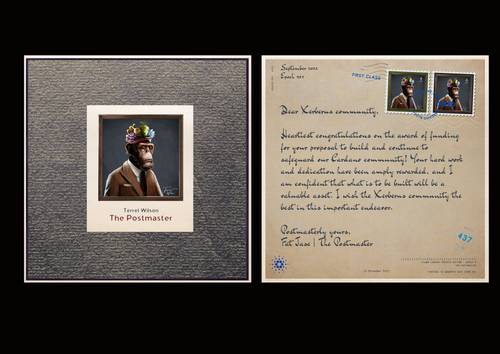 Terrel Wilson
The Postmaster
September 2022
FIRST CLASS
Dear Xerberus community,
Heartiest congratulations on the award of funding
for your proposal to build and continue to
safeguard our Cardano community! Your hard work
and dedication have been amply rewarded, and I
am confident that what is to be built will be a
valuable asset. I wish the Xerberus community the
best in this important endeavor.
Postmasterly yours,
Fat Jase | The Postmaster
437